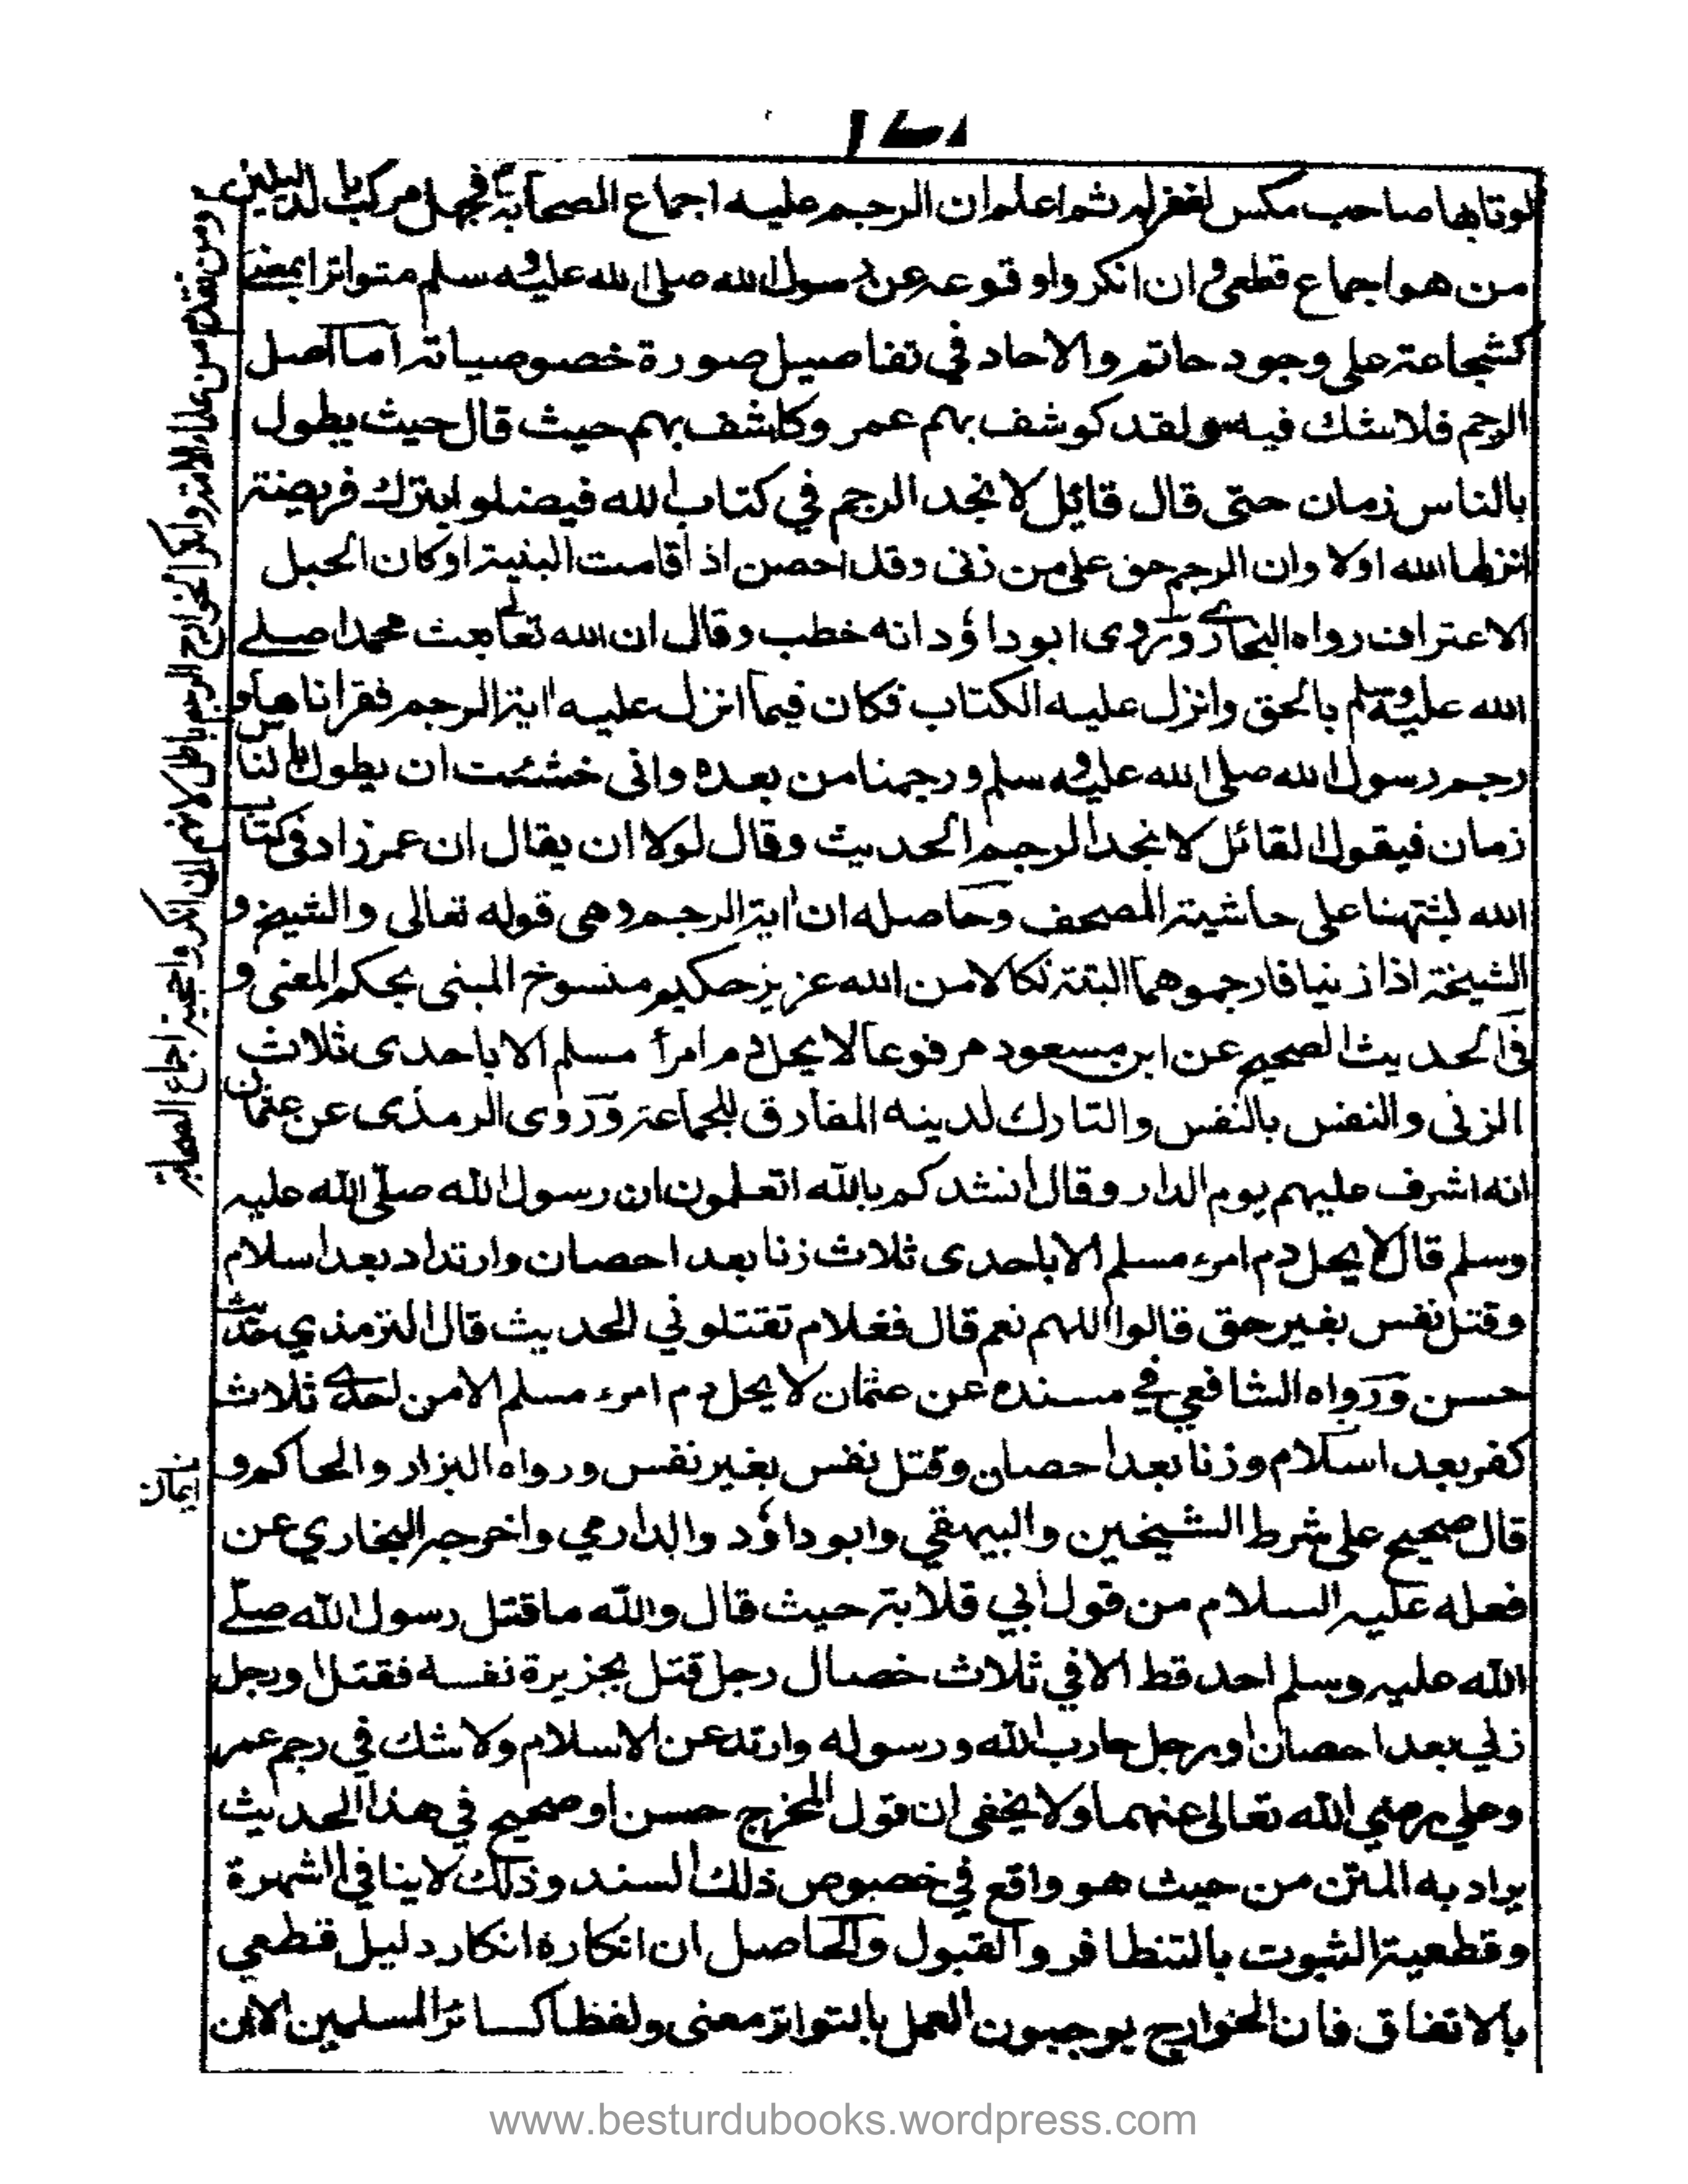 لو تابها صاحب مكس لغفر له ثم اعلم ان الرجم عليه اجماع الصحابة فجهل مركب بالدليلين
من هو اجماع قطعي وان انكروا وقوعه عن رسول الله صلى الله عليه وسلم متواترا بمعنى
كشجاعة على وجود حاتم والاحاد في تفاصيل صورة خصوصياته اما اصل
الرجم فلا شك فيه ولقد كوشف بهم عمر وكاشف بهم حيث قال حيث يطول
بالناس زمان حتى قال قائل لا نجد الرجم في كتاب الله فيضلوا بترك فريضة
انزلها الله اولا وان الرجم حق على من زنى وقد احصن اذا قامت البنية او كان الحبل
الاعتراف رواه البخاري وروى ابو داؤد انه خطب وقال ان الله تعالى بعث محمدا صلے
الله عليه وسلم بالحق وانزل عليه الكتاب فكان فيما انزل عليه اية الرجم فقراناها و
رجم رسول الله صلى الله عليه وسلم ورجمنا من بعده وانى خشئت ان يطول بالناس
زمان فيقول القائل لا نجد الرجم الحديث وقال لولا ان يقال ان عمر زاد في كتاب
الله لثبتهنا على حاشية المصحف وحاصله ان اية الرجم وهى قوله تعالى والشيخ و
الشيخة اذا زنيا فارجموهما البتة نكالا من الله عزيز حكيم منسوخ المبنى بحكم المعنى و
في الحديث الصحيح عن ابن مسعود مرفوعا لا يحل دم امرأ مسلم الا باحدى ثلاث
الزنى والنفس بالنفس والتارك لدينه المفارق للجماعة وروى الرمذى عن عثمان
انه اشرف عليهم يوم الدار وقال انشدكم بالله اتعلمون ان رسول الله صلى الله عليه
وسلم قال لا يحل دم امرء مسلم الا باحدى ثلاث زنا بعد احصان وارتداد بعد اسلام
وقتل نفس بغير حق قالوا اللهم نعم قال فغلام تقتلوني الحديث قال الترمذي حديث
حسن ورواه الشافعي في مسنده عن عثمان لا يحل دم امرء مسلم الا من احدے ثلاث
كفر بعد اسلام وزنا بعد احصان وقتل نفس بغير نفس ورواه البزار والحاكم و
قال صحيح على شرط الشيخين والبيهقي وابو داؤد والدارمي واخرجه البخاري عن
فعله عليه السلام من قول ابي قلابة حيث قال والله ما قتل رسول الله صلے
الله عليه وسلم احد قط الا في ثلاث خصال رجل قتل بجزيرة نفسه فقتل ا ورجل
زنى بعد احصان او رجل حارب الله ورسوله وارتد عن الاسلام ولا شك في رجم عمر
وعلي رضي الله تعالى عنهما ولا يخفى ان قول المخرج حسن او صحيح في هذا الحديث
يراد به المتن من حيث هو واقع في خصوص ذلك السند وذلك لا ينافي الشهرة
وقطعية الثبوت بالتظافر والقبول والحاصل ان انكاره انكار دليل قطعي
بالاتفاق فان الخوارج يوجبون العمل بالتواتر معنى ولفظا كسائر المسلمين الا ان
ومن تقدم من علماء الامة وانكر الخوارج الرجم باطل لانهم ان انكروا حجية اجماع الصحابة
ايمان
www.besturdubooks.wordpress.com